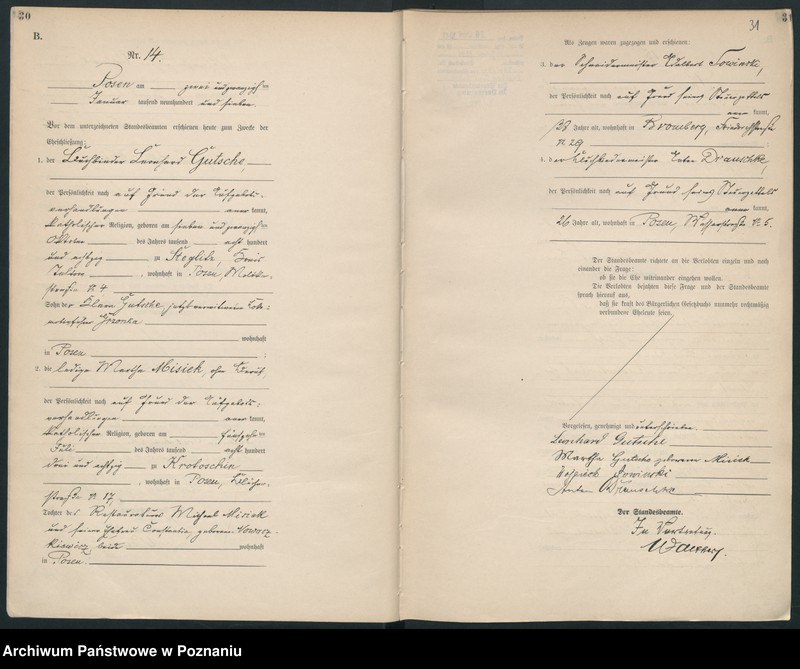 30
B.
Nr. 14.
Posen am zwei und zwanzigsten
Januar tausend neunhundert und sieben.
Vor dem unterzeichneten Standesbeamten erschienen heute zum Zwecke der
Eheschließung:
1. der Buchbinder Leonhard Gutsche,
der Persönlichkeit nach auf Grund der Aufgebots-
verhandlungen kannt,
katholischer Religion, geboren am sieben und zwanzigsten
Oktober des Jahres tausend acht hundert
und achtzig zu Steglitz, Kreis
Teltow, wohnhaft in Posen,
straße N 4
Sohn der Klara Gutsche jetzt verwitwete
Gozonka
wohnhaft
in Posen;
2. die ledige Martha Misiek, ohne Beruf,
der Persönlichkeit nach auf Grund der Aufgebots-
verhandlungen kannt,
katholischer Religion, geboren am
Juli des Jahres tausend acht hundert
drei und achtzig zu Krotoschin
, wohnhaft in Posen,
straße N 17,
Tochter des Restaurateurs Michael Misiek
und seiner Ehefrau Constantia geborenen Nowacz-
kiewicz beide wohnhaft
in Posen.
31
31
Als Zeugen waren zugezogen und erschienen:
3. der Schneidermeister Adalbert Fowinski,
der Persönlichkeit nach auf Grund seines Steuerzettels
kannt,
38 Jahre alt, wohnhaft in Bromberg, Friedrichstraße
N 29;
4. der Anton Drauschke,
der Persönlichkeit nach auf Grund seines Steuerzettels
kannt,
26 Jahre alt, wohnhaft in Posen, Wasserstraße N. 5.
Der Standesbeamte richtete an die Verlobten einzeln und nach
einander die Frage:
ob sie die Ehe miteinander eingehen wollen.
Die Verlobten bejahten diese Frage und der Standesbeamte
sprach hierauf aus,
daß sie kraft des Bürgerlichen Gesetzbuchs nunmehr rechtmäßig
verbundene Eheleute seien.
Vorgelesen, genehmigt und unterschrieben.
Leonhard Gutsche
Martha Gutsche geborene Misiek
Fowinski
Anton Drauschke
Der Standesbeamte.
In Vertretung.
Archiwum Państwowe w Poznaniu